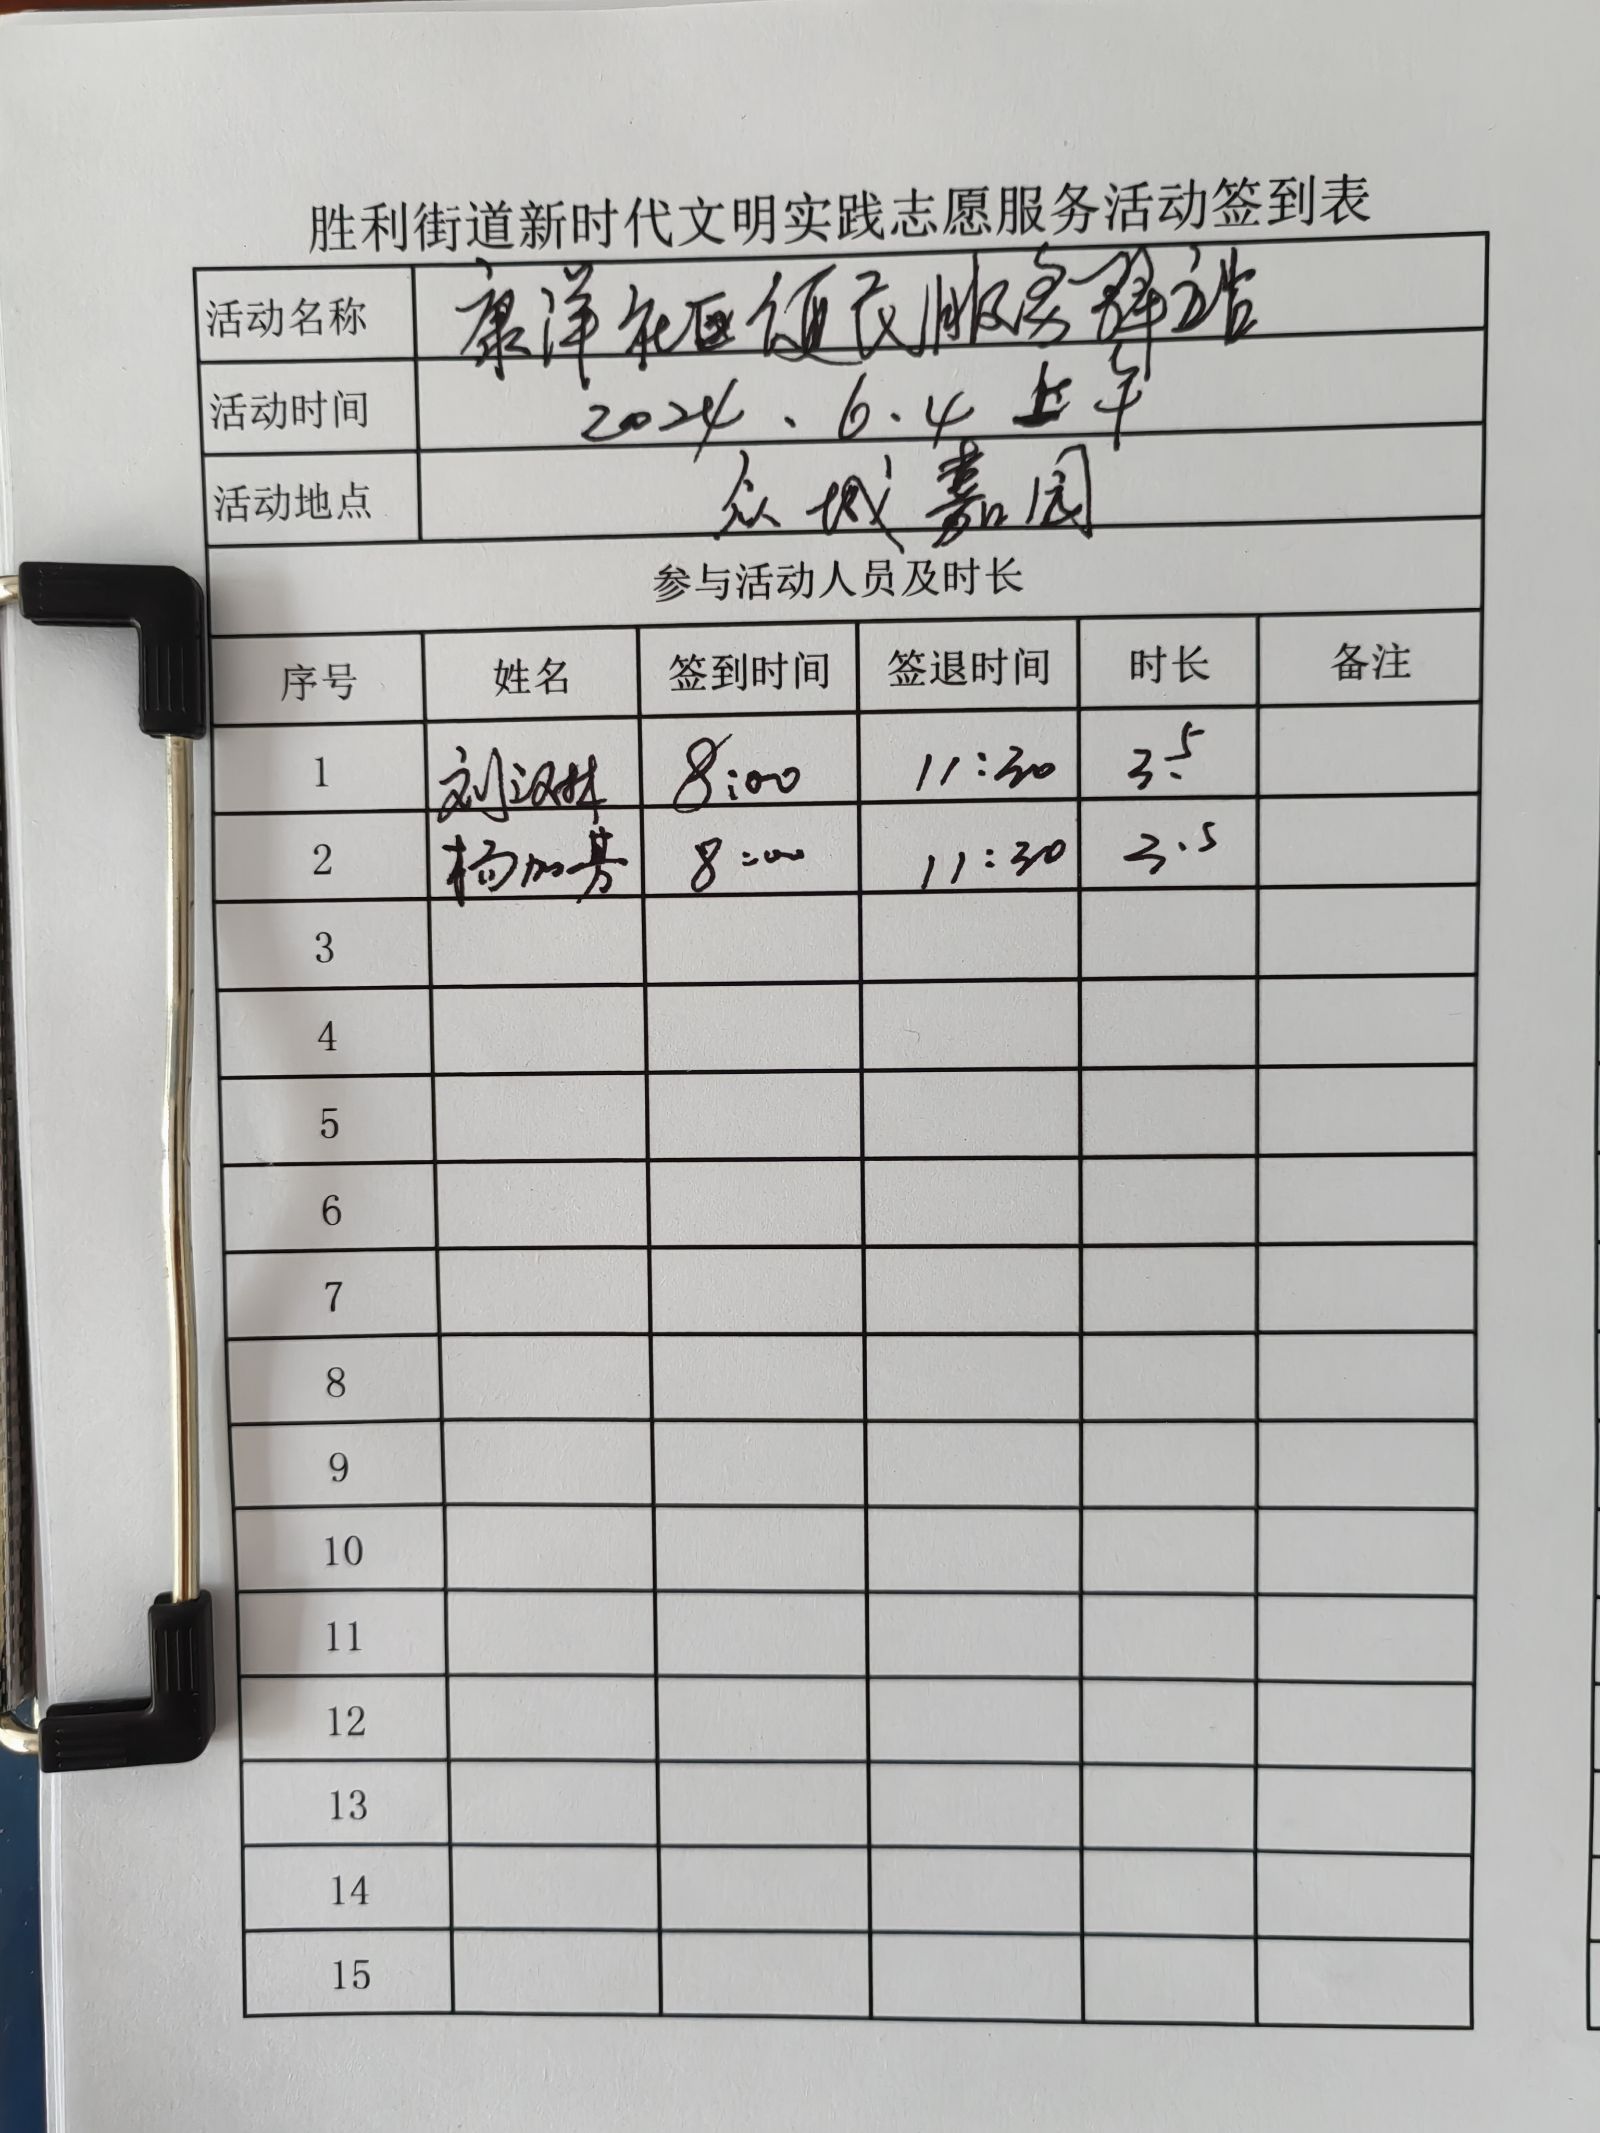 胜利街道新时代文明实践志愿服务活动签到表
活动名称 康洋社区便民服务驿站
活动时间 2024.6.4 上午
活动地点 众城嘉园
参与活动人员及时长
序号 姓名 签到时间 签退时间 时长 备注
1 刘汉林 8:00 11:30 3.5
2 杨加芳 8:00 11:30 3.5
3
4
5
6
7
8
9
10
11
12
13
14
15